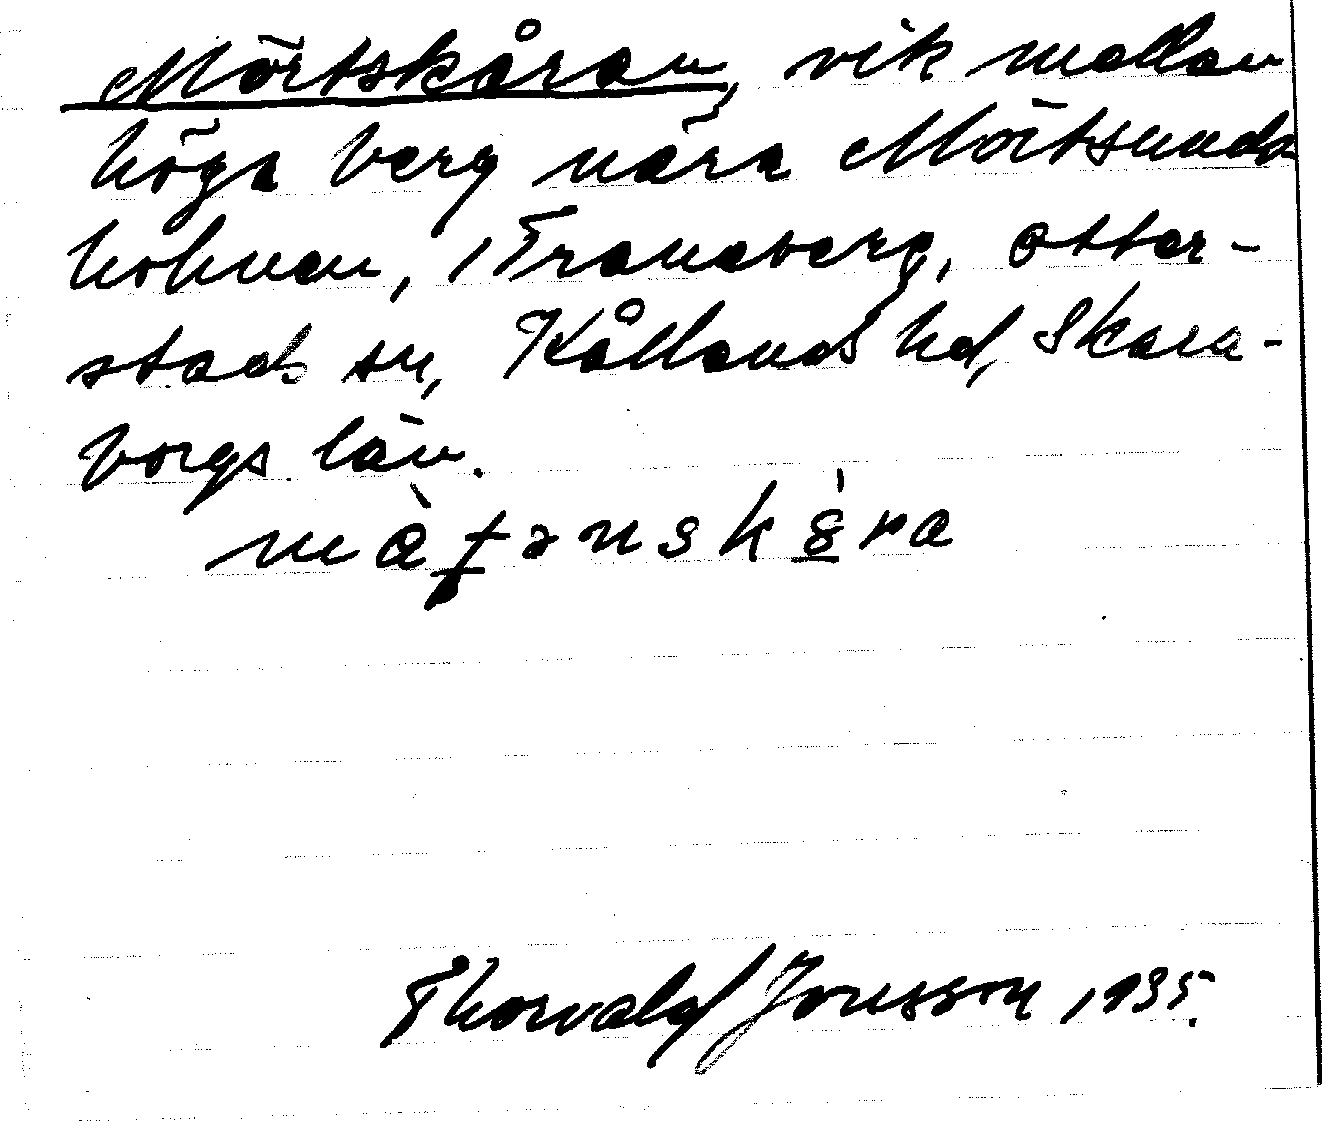 Mörtskåran, vik mellan
höga berg nära Mörtsunds
holmen, Traneberg, Otter-
stads sn, Kållands hd, Skara-
borgs län.
Thorvald Jonsson, 1935.